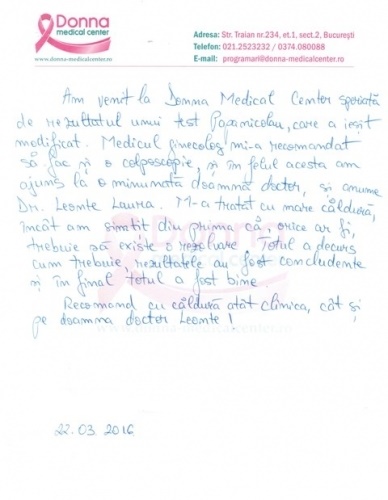 Donna
medical center
www.donna-medicalcenter.ro
Adresa: Str. Traian nr.234, et.1, sect.2, București
Telefon: 021.2523232 / 0374.080088
E-mail: programari@donna-medicalcenter.ro
Am venit la Donna Medical Center speriată
de rezultatul unui test Papanicolau, care a ieșit
modificat. Medicul ginecolog mi-a recomandat
să fac și o colposcopie, și în felul acesta am
ajuns la o minunată doamnă doctor, și anume
Dr. Leonte Laura. M-a tratat cu mare căldură,
încât am simțit din prima că, orice ar fi,
trebuie să existe o rezolvare. Totul a decurs
cum trebuie, rezultatele au fost concludente
și în final totul a fost bine.
Recomand cu căldură atât clinica, cât și
pe doamna doctor Leonte!
www.donna-medicalcenter.ro
22.03.2016